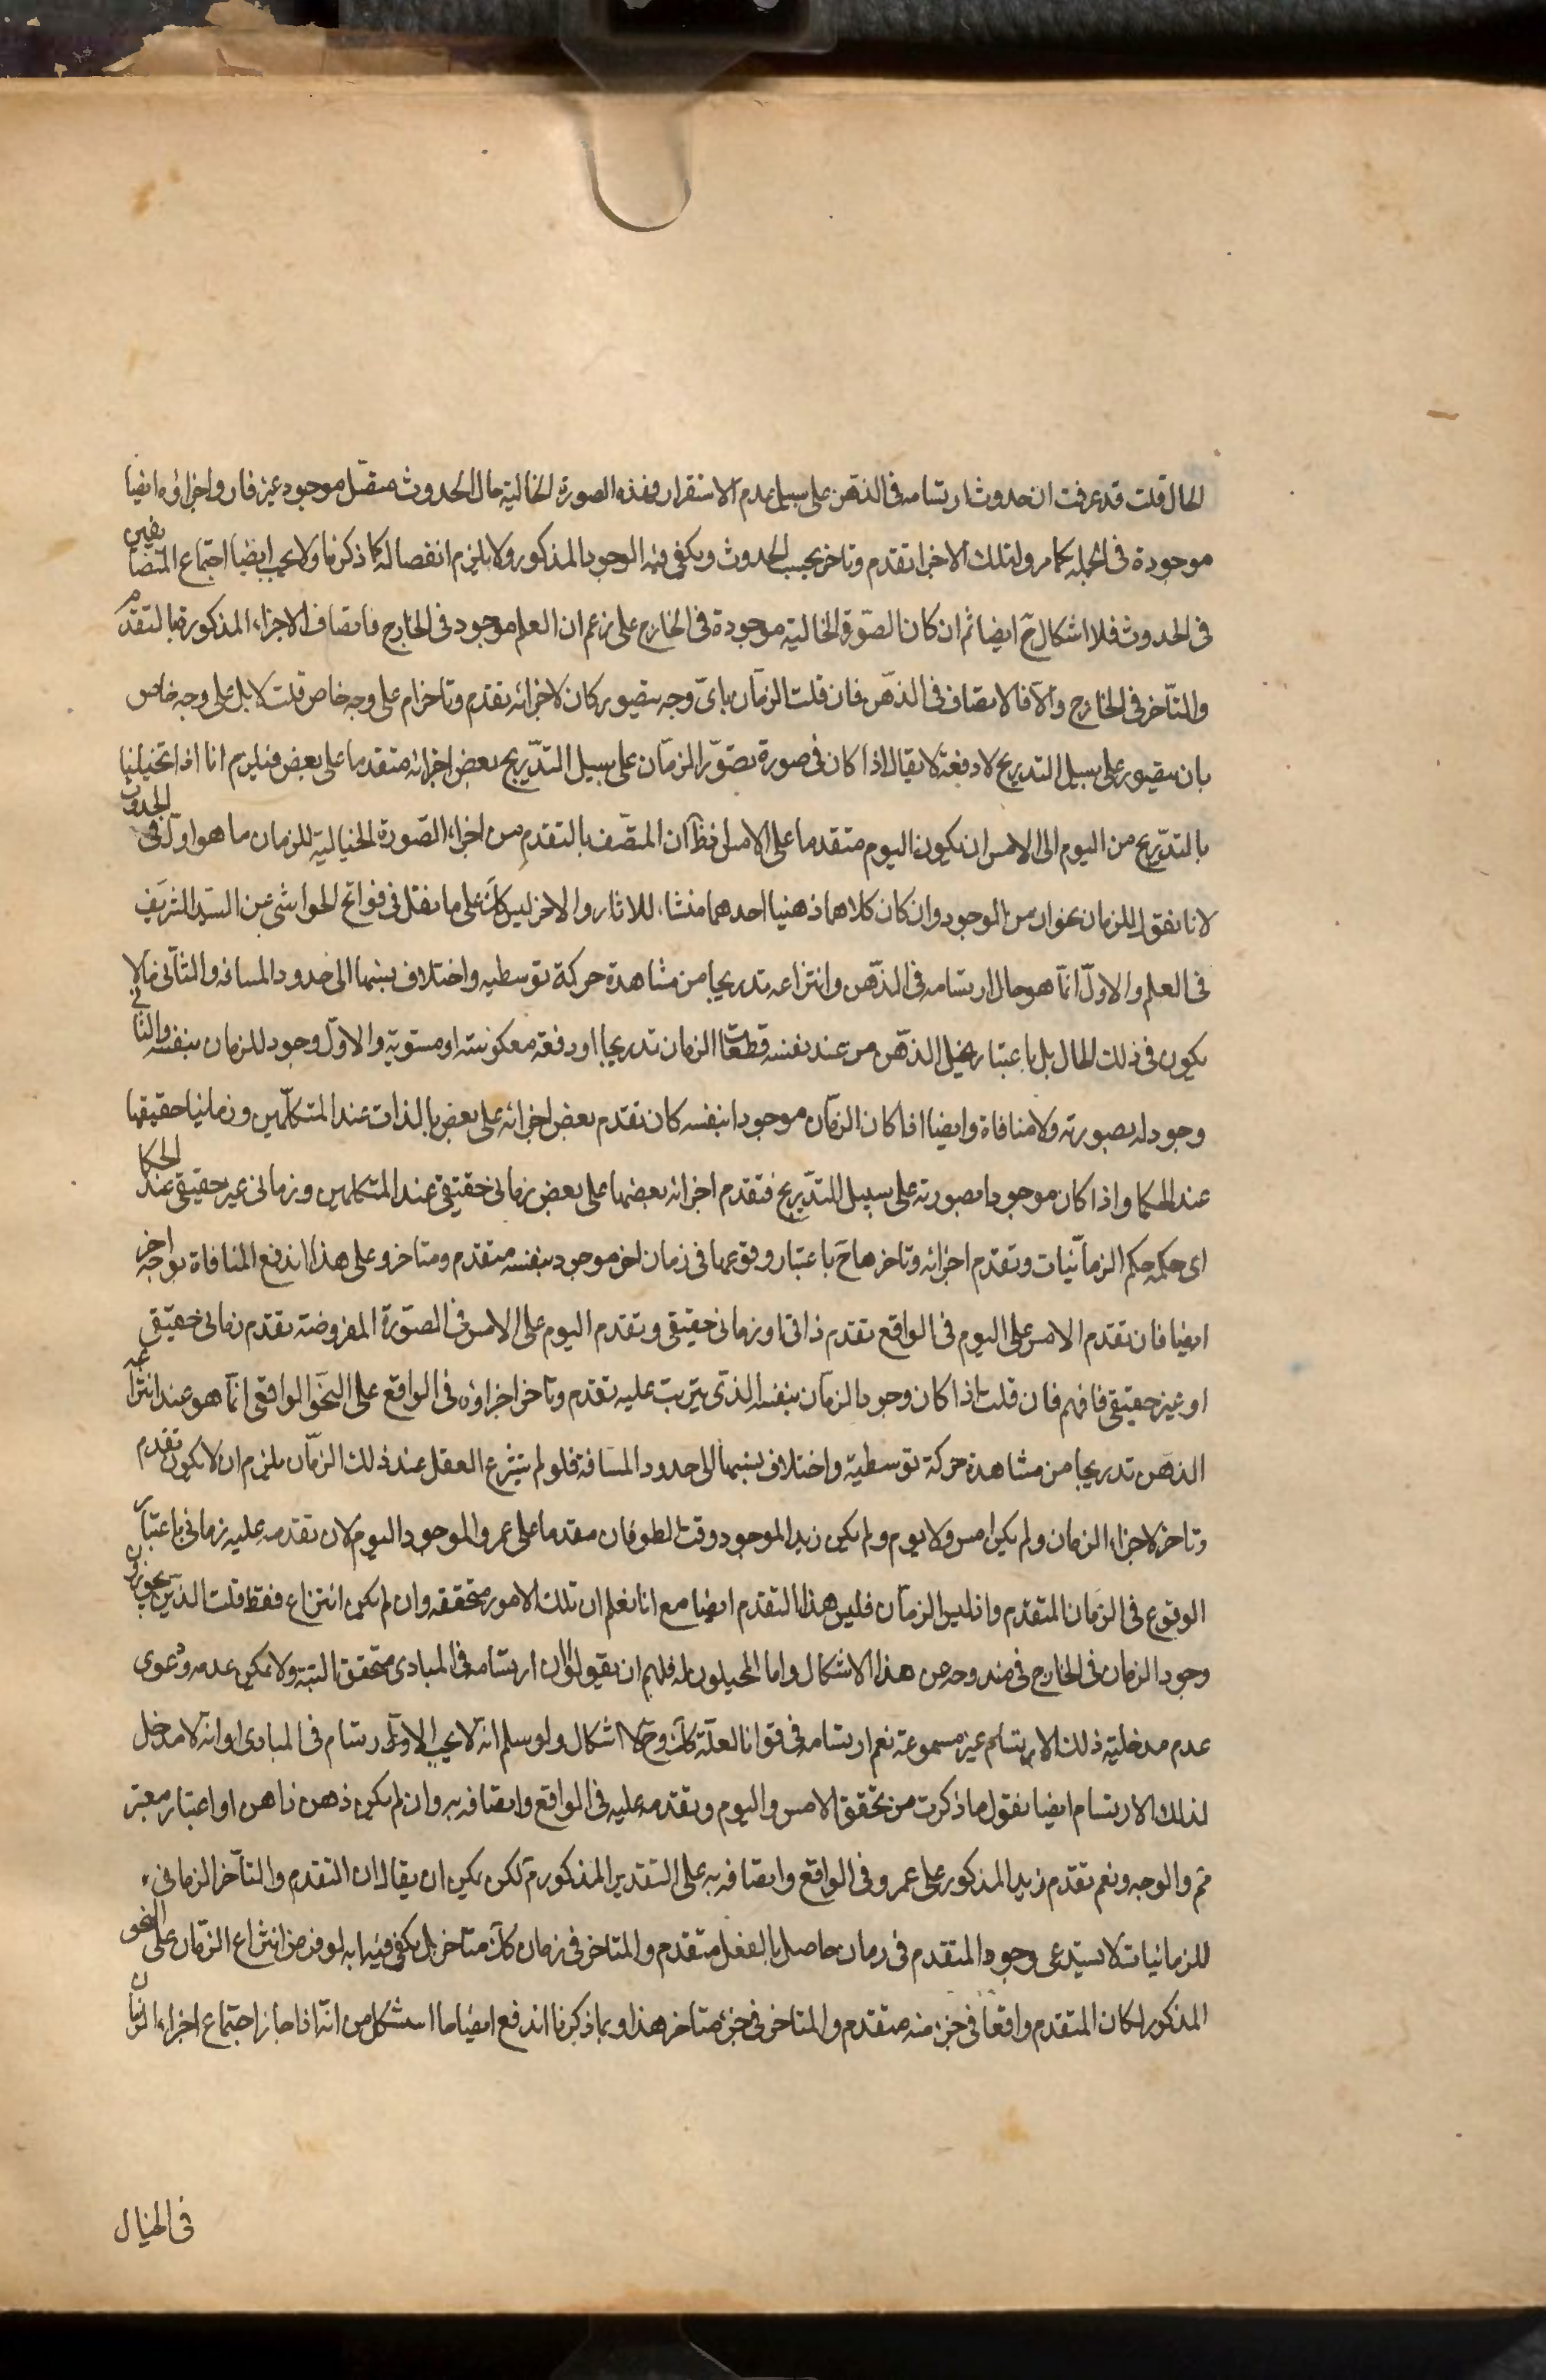 الحال قلت قد عرفت ان حدوث ارتسامه فى الذهن على سبيل عدم الاستقرار وهذه الصورة الخالية حال الحدوث متصل موجود غير قار واجزاؤه ايضا
موجودة فى الجملة كما مر ولتلك الاجزا تقدم وتاخر بحسب الحدوث ويكفى فيه الوجود المذكور ولا يلزم انفصاله كما ذكرنا ولا يجب ايضا اجتماع المتضايفين
فى الحدوث فلا اشكال ح ايضا ثم ان كان الصورة الخالية موجودة فى الخارج على زعم ان العلم موجود فى الخارج فاتصاف الاجزاء المذكورة بالتقدم
والتاخر فى الخارج والا فالاتصاف فى الذهن فان قلت الزمان باى وجه يتصور كان لاجزائه تقدم وتاخر ام على وجه خاص قلت لا بل على وجه خاص
بان يتصور على سبيل التدريج لا دفعة لا يقال اذا كان فى صورة تصور الزمان على سبيل التدريج بعض اجزائه متقدما على بعض فيلزم انا اذا تخيلنا
بالتدريج من اليوم الى الامس ان يكون اليوم متقدما على الامس فظ ان المتصف بالتقدم من اجزاء الصورة الخيالية للزمان ما هو اول فى الحدوث
لانا نقول للزمان نحوان من الوجود وان كان كلاهما ذهنيا احدهما منشاء للاثار والاخر ليس كك على ما نقل فى فواتح الحواشى عن السيد الشريف
فى العلم والاول انما هو حال ارتسامه فى الذهن وانتزاعه تدريجا من مشاهدة حركة توسطيه واختلاف نسبتها الى حدود المسافه والثانى ما لا
يكون فى ذلك الحال بل باعتبار تخيل الذهن من عند نفسه قطعات الزمان تدريجا او دفعة معكوسته او مستوية والاول وجود للزمان بنفسه والثانى
وجود له بصورته ولا منافاة وايضا اذا كان الزمان موجودا بنفسه كان تقدم بعض اجزائه على بعض بالذات عند المتكلمين وزمانيا حقيقيا
عند الحكما واذا كان موجودا بصورته على سبيل التدريج فتقدم اجزائه بعضها على بعض زمانى حقيقى عند المتكلمين وزمانى غير حقيقى عند الحكما
اى حكمه حكم الزمانيات وتقدم اجزائه وتاخرها ح باعتبار وقوعها فى زمان اخر موجود بنفسه متقدم ومتاخر وعلى هذا اندفع المنافاة بوجه اخر
ايضا فان تقدم الامس على اليوم فى الواقع تقدم ذاتى او زمانى حقيقى وتقدم اليوم على الامس فى الصورة المفروضة تقدم زمانى حقيقى
او غير حقيقى فافهم فان قلت اذا كان وجود الزمان بنفسه الذى يترتب عليه تقدم وتاخر اجزاؤه فى الواقع على النحو الواقعى انما هو عند انتزاعه
الذهن تدريجا من مشاهدة حركة توسطية واختلاف نسبتها الى حدود المسافة فلو لم ينتزع العقل عند ذلك الزمان يلزم ان لا يكون تقدم
وتاخر لاجزاء الزمان ولم يكن امس ولا يوم ولم يكن زيد الموجود وقت الطوفان مقدما على عمرو الموجود اليوم لان تقدمه عليه زمانى باعتبار
الوقوع فى الزمان المتقدم واذ ليس الزمان فليس هذا التقدم ايضا مع انا نعلم ان تلك الامور متحققه وان لم يكن انتزاع فقط قلت الذين يجوزون
وجود الزمان فى الخارج فى مندوحه عن هذا الاشكال واما المحيلون له فلهم ان يقولوا ان ارتسامه فى المبادى متحقق البتة ولا يمكن عدمه ودعوى
عدم مدخلية ذلك الارتسام غير مسموعة نعم ارتسامه فى قوانا لعلة كك وح لا اشكال ولو سلم انه لا يجب الارتسام فى المبادى او انه لا مدخل
لذلك الارتسام ايضا نقول ما ذكرت من تحقق الامس واليوم وتقدمه عليه فى الواقع واتصافه به وان لم يكن ذهن ذاهن او اعتبار معتبر
ثم والوجه ونعم تقدم زيد المذكور على عمرو فى الواقع واتصافه به على التقدير المذكور م لكن يمكن ان يقال ان التقدم والتاخر الزمانى
للزمانيات لا يستدعى وجود المتقدم فى زمان حاصل بالفعل متقدم والمتاخر فى زمان كك متاخر بل يكفى فيه انه لو فرض انتزاع الزمان على النحو
المذكور لكان المتقدم واقعا فى جزء منه متقدم والمتاخر فى جزء متاخر هذا وبما ذكرنا اندفع ايضا ما استشكل من انه اذا جاز اجتماع اجزاء الزمان
فى الخيال